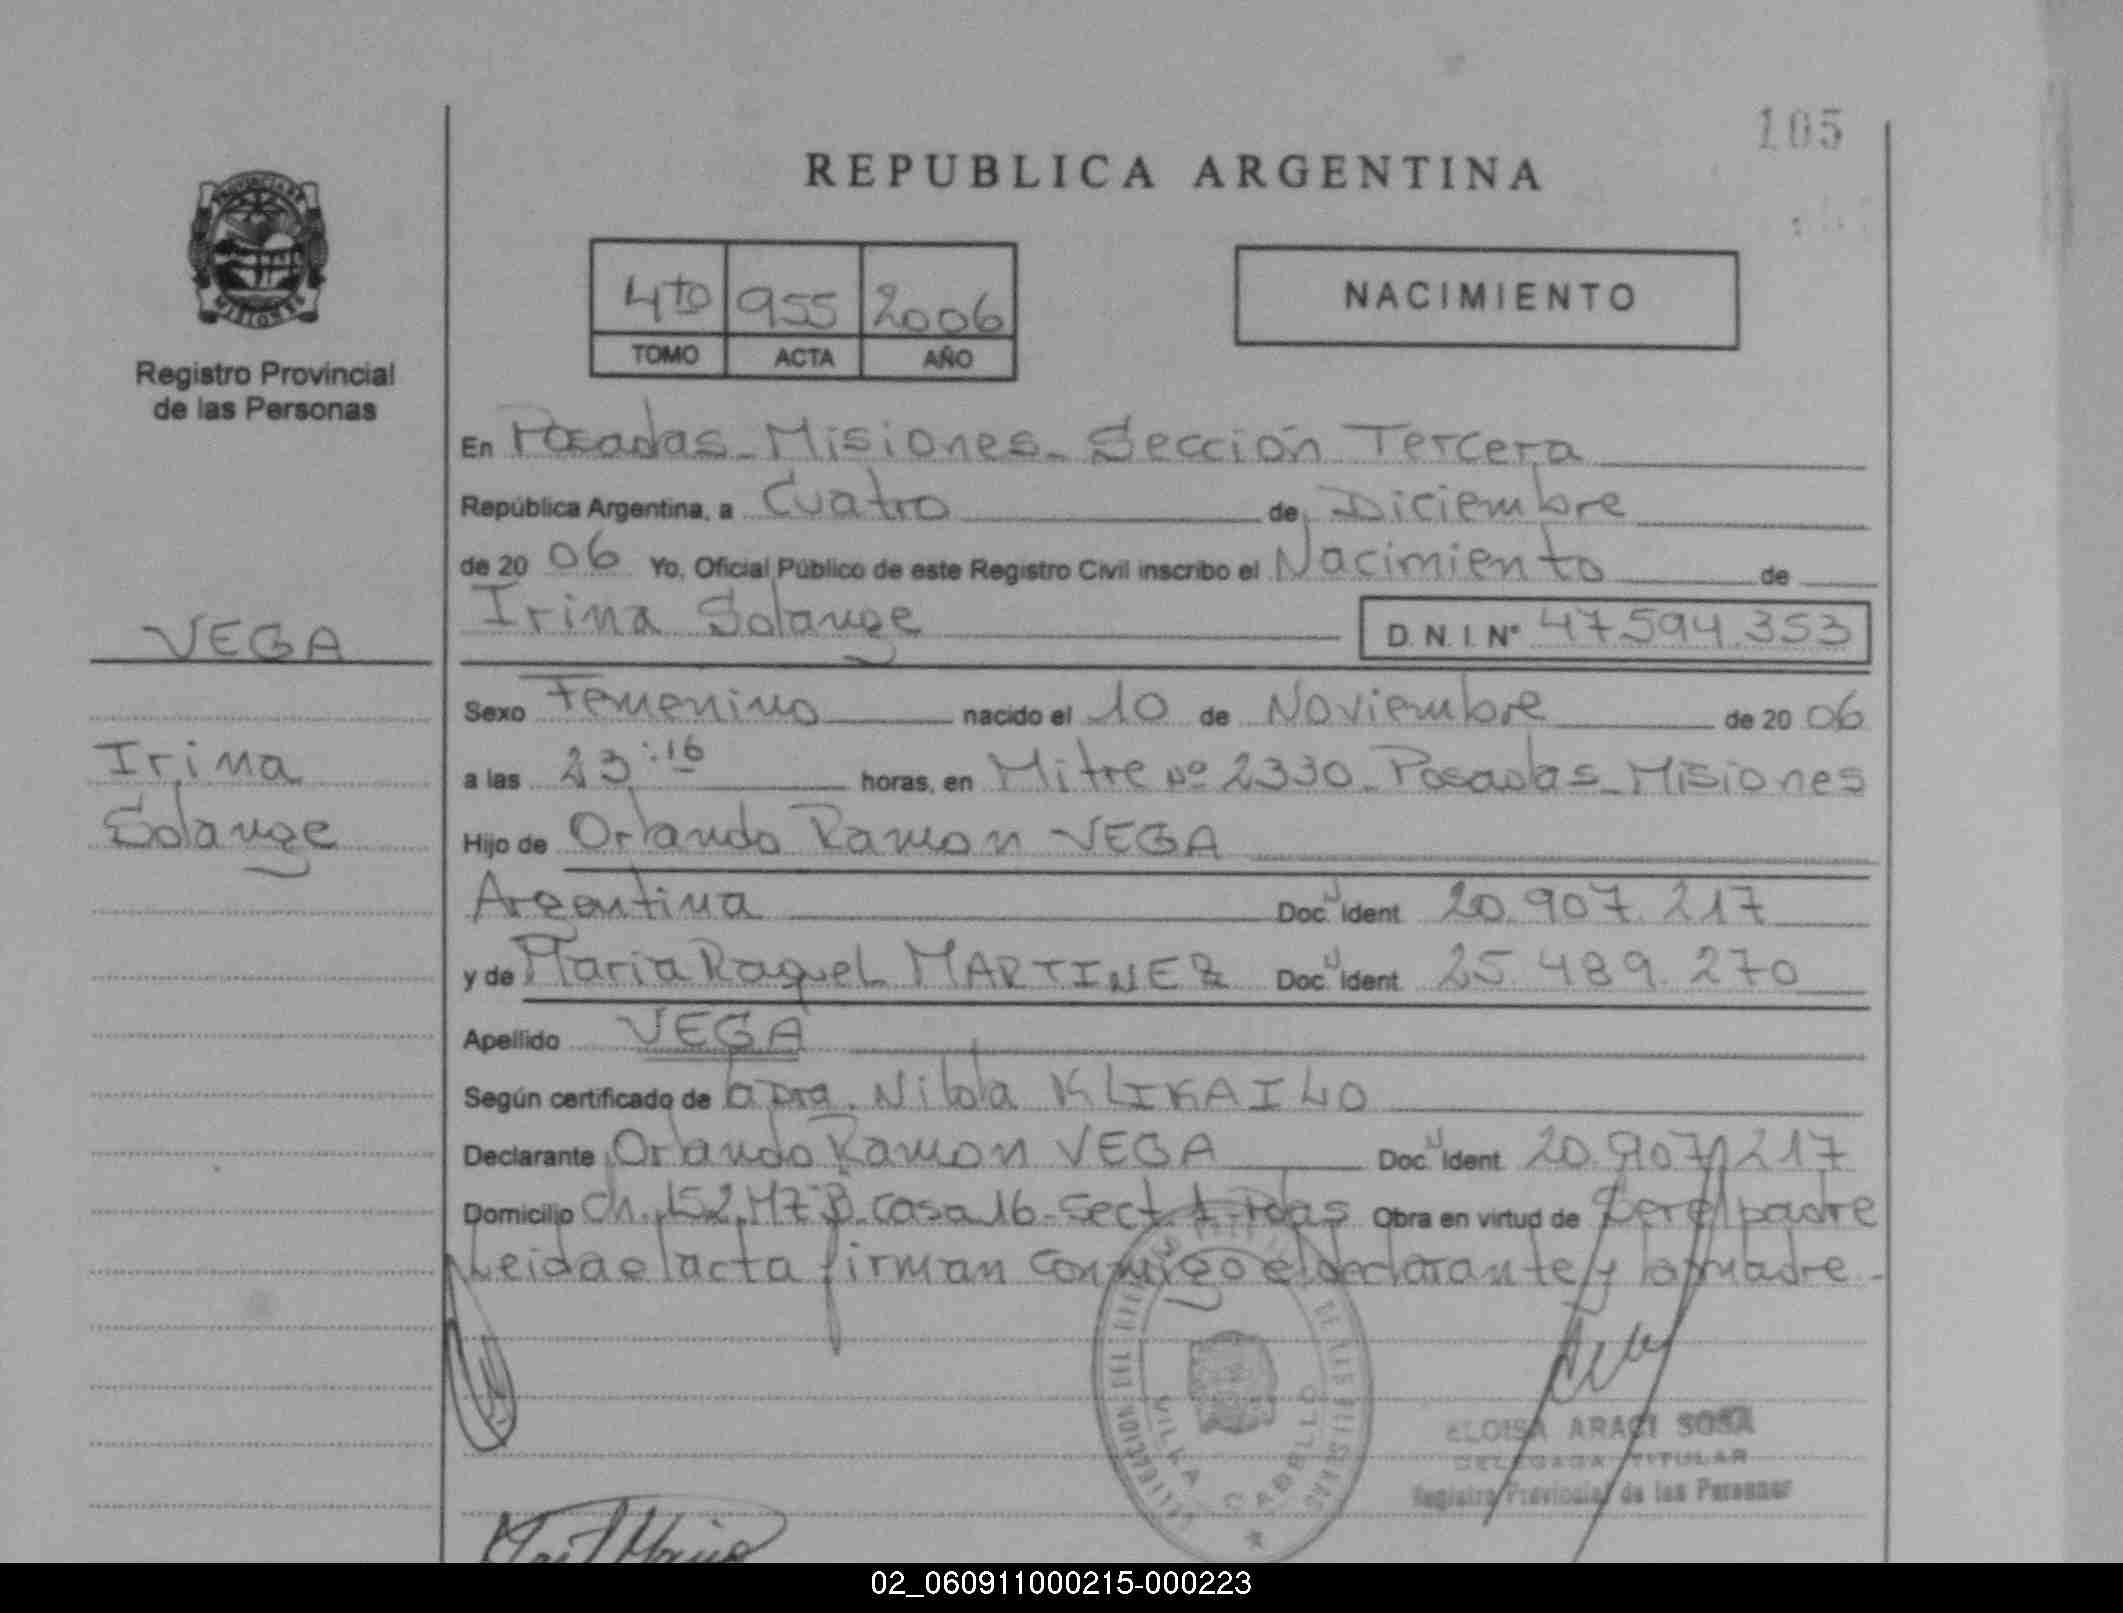 105
REPUBLICA ARGENTINA
PROVINCIA DE
MISIONES
Registro Provincial
de las Personas
4to 955 2006
TOMO ACTA AÑO
NACIMIENTO
En Posadas - Misiones - Sección Tercera
República Argentina, a Cuatro de Diciembre
de 20 06 Yo, Oficial Público de este Registro Civil inscribo el Nacimiento de
Irina Solange D.N.I. Nº 47.594.353
VEGA
Irina
Solange
Sexo Femenino nacido el 10 de Noviembre de 20 06
a las 23:16 horas, en Mitre Nº 2330 - Posadas - Misiones
Hijo de Orlando Ramon VEGA
Argentina Doc. Ident 20.907.217
y de Maria Raquel MARTINEZ Doc. Ident 25.489.270
Apellido VEGA
Según certificado de la Dra. Nilda
Declarante Orlando Ramon VEGA Doc. Ident 20.907.217
Domicilio Ch. 152 Mz B. Casa 16 - Sect. Pdas Obra en virtud de Ser el padre
Leida el acta firman conmigo el declarante y la madre -
ELOISA ARACI SOSA
DELEGADA TITULAR
Registro Provincial de las Personas
VILLA CABELLO
02_060911000215-000223